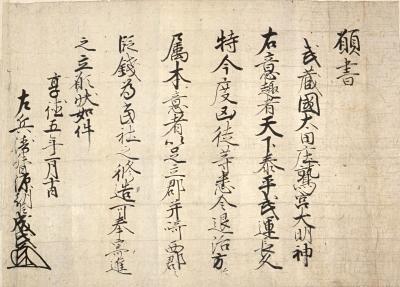 願書
武蔵國太田庄鷲宮大明神
右意趣者天下泰平武運長久
特今度凶徒等悉令退治方々
属本意者以足立郡并埼西郡
段錢為當社之修造可奉寄進
之立願状如件
享徳五年 月十日
左兵衛督源朝臣成氏